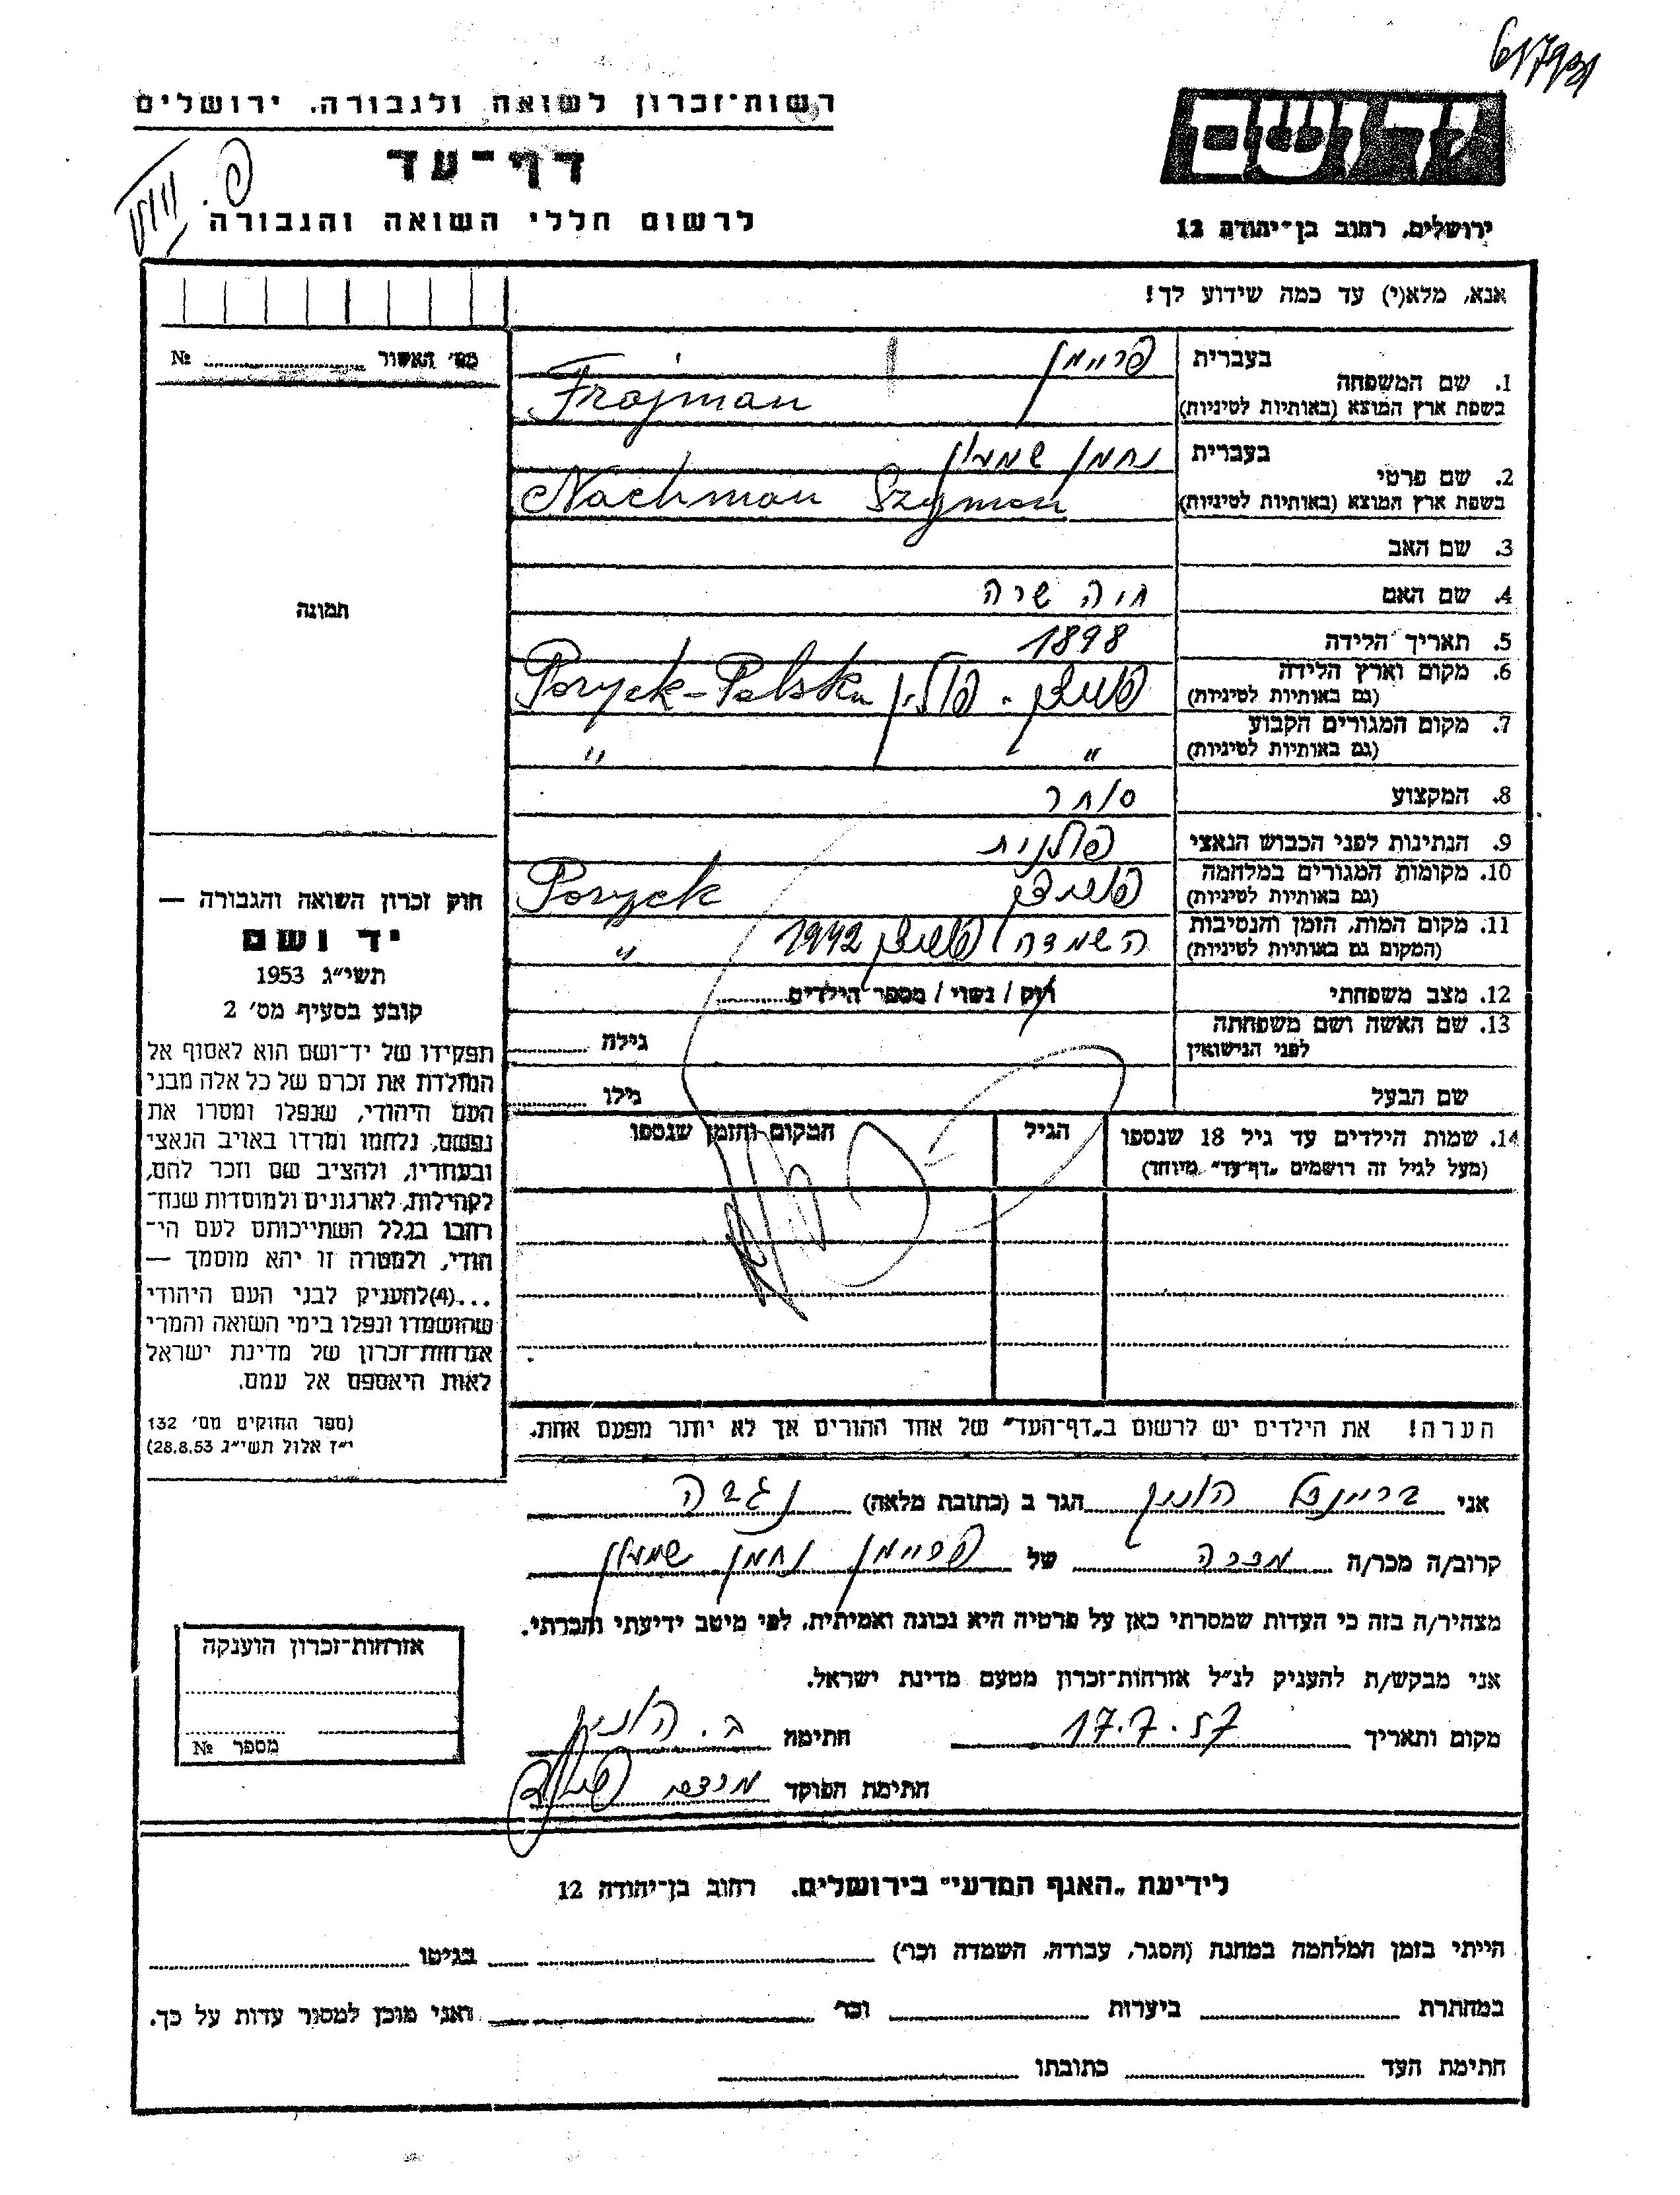 617931
רשות־זכרון לשואה ולגבורה, ירושלים
דף־עד
לרשום חללי השואה והגבורה
יד ושם
ירושלים, רחוב בן־יהודה 12
אנא, מלא(י) עד כמה שידוע לך!
מס׳ האשור № ..........
1. שם המשפחה בעברית פריימן
בשפת ארץ המוצא (באותיות לטיניות) Frajman
2. שם פרטי בעברית נחמן שמעון
בשפת ארץ המוצא (באותיות לטיניות) Nachman Szymon
3. שם האב
4. שם האם חיה שרה
5. תאריך הלידה 1898
6. מקום וארץ הלידה פוריצק - פולין Poryck-Polska
(גם באותיות לטיניות)
7. מקום המגורים הקבוע " "
(גם באותיות לטיניות)
8. המקצוע סוחר
9. הנתינות לפני הכבוש הנאצי פולנית
10. מקומות המגורים במלחמה פוריצק Poryck
(גם באותיות לטיניות)
11. מקום המות, הזמן והנסיבות השמדה פוריצק 1942 "
(המקום גם באותיות לטיניות)
12. מצב משפחתי רוק / נשוי / מספר הילדים..........
13. שם האשה ושם משפחתה גילה ..........
לפני הנישואין
שם הבעל גילו ..........
14. שמות הילדים עד גיל 18 שנספו הגיל המקום והזמן שנספו
(מעל לגיל זה רושמים „דף־עד״ מיוחד)
תמונה
חוק זכרון השואה והגבורה —
יד ושם
תשי״ג 1953
קובע בסעיף מס׳ 2
תפקידו של יד־ושם הוא לאסוף אל
המולדת את זכרם של כל אלה מבני
העם היהודי, שנפלו ומסרו את
נפשם, נלחמו ומרדו באויב הנאצי
ובעוזריו, ולהציב שם וזכר להם,
לקהילות, לארגונים ולמוסדות שנח־
רבו בגלל השתייכותם לעם הי־
הודי, ולמטרה זו יהא מוסמך —
...(4)להעניק לבני העם היהודי
שהושמדו ונפלו בימי השואה והמרי
אזרחות־זכרון של מדינת ישראל
לאות היאספם אל עמם.
(ספר החוקים מס׳ 132
י״ז אלול תשי״ג 28.8.53)
הערה! את הילדים יש לרשום ב„דף־העד״ של אחד ההורים אך לא יותר מפעם אחת.
אני בריינדל הגר ב (כתובת מלאה) נגבה
קרוב/ה מכר/ה מכרה של פריימן נחמן שמעון
מצהיר/ה בזה כי העדות שמסרתי כאן על פרטיה היא נכונה ואמיתית, לפי מיטב ידיעתי והכרתי.
אני מבקש/ת להעניק לנ״ל אזרחות־זכרון מטעם מדינת ישראל.
מקום ותאריך 17.7.57 חתימה ב.
חתימת הפוקד
אזרחות־זכרון הוענקה
מספר №
לידיעת „האגף המדעי״ בירושלים, רחוב בן־יהודה 12
הייתי בזמן המלחמה במחנה (הסגר, עבודה, השמדה וכו׳) .......... בגיטו ..........
במחתרת .......... ביערות .......... וכו׳ .......... ואני מוכן למסור עדות על כך.
חתימת העד .......... כתובתו ..........